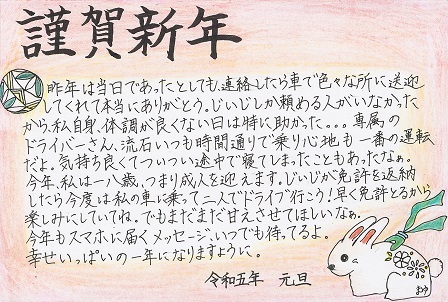 謹賀新年
昨年は当日であったとしても、連絡したら車で色々な所に送迎
してくれて本当にありがとう。じいじしか頼める人がいなかった
から、私自身、体調が良くない日は特に助かった。。。専属の
ドライバーさん、流石いつも時間通りで乗り心地も一番の運転
だよ。気持ち良くてついつい途中で寝てしまったこともあったなぁ。
今年、私は一八歳、つまり成人を迎えます。じいじが免許を返納
したら今度は私の車に乗って二人でドライブ行こう！早く免許とるから
楽しみにしていてね。でもまだまだ甘えさせてほしいなぁ。
今年もスマホに届くメッセージ、いつでも待ってるよ。
幸せいっぱいの一年になりますように。
令和五年 元旦